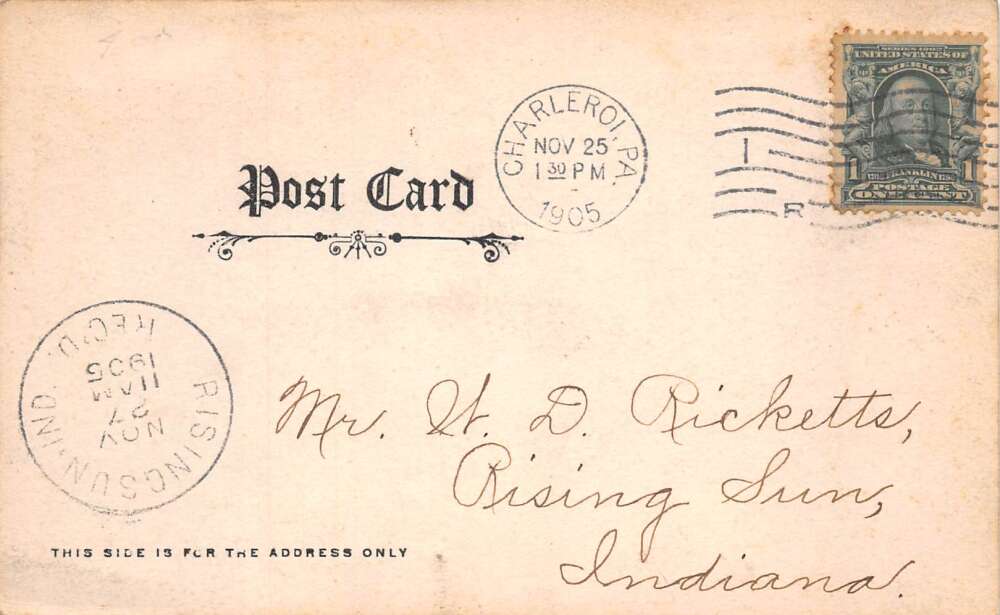 SERIES 1902
UNITED STATES OF
AMERICA
1 FRANKLIN 1
POSTAGE
ONE CENT
CHARLEROI, PA.
NOV 25
1 30 PM
1905
I
R
Post Card
RISING SUN, IND.
NOV
27
11 AM
1905
REC'D.
Mr. W. D. Ricketts,
Rising Sun,
Indiana.
THIS SIDE IS FOR THE ADDRESS ONLY